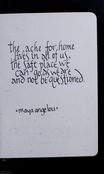 the ache for home
lives in all of us.
the safe place we
can go as we are
and not be questioned.
• maya angelou •